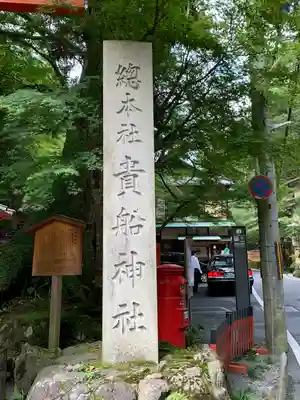 總本社貴船神社